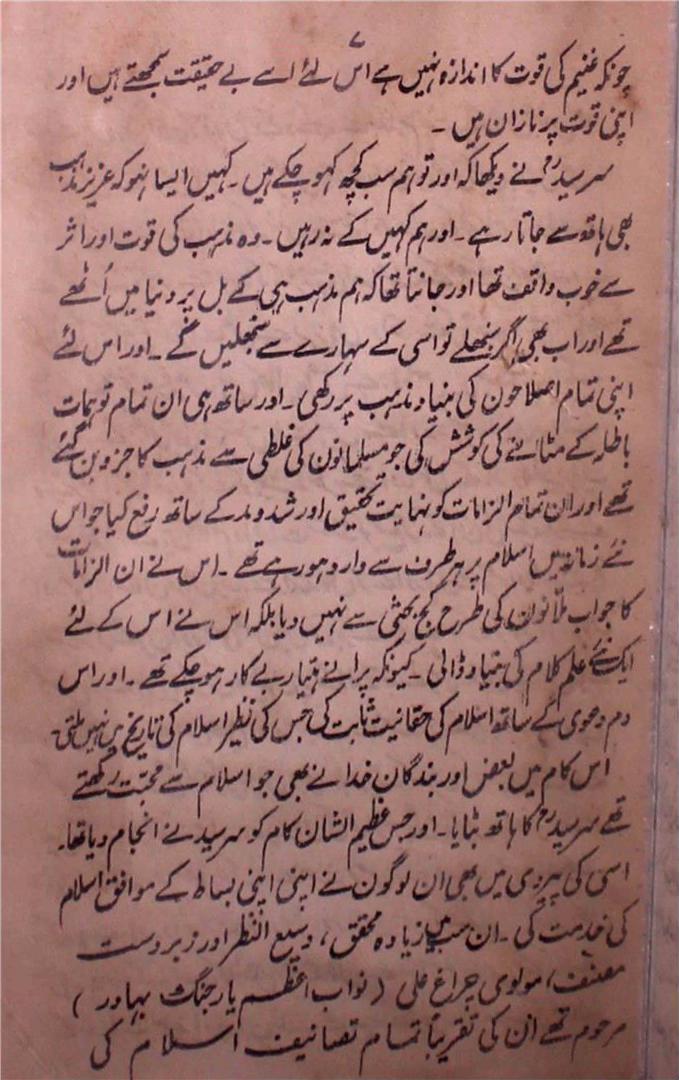 ۷
چونکہ غنیم کی قوت کا اندازہ نہیں ہے اس لئے اسے بے حقیقت سمجھتے ہیں اور
اپنی قوت پر نازان ہیں ۔
سرسیدؒ نے دیکھا کہ اور تو ہم سب کچھ کہو چکے ہیں ۔ کہیں ایسا نہو کہ عزیز مذہب
بھی ہاتھ سے جاتا رہے ۔ اور ہم کہیں کے نہ رہیں ۔ وہ مذہب کی قوت اور اثر
سے خوب واقف تھا اور جانتا تھا کہ ہم مذہب ہی کے بل پر دنیا میں اُٹھے
تھے اور اب بھی اگر سنبھلے تو اسی کے سہارے سے سنبھلیں گے ۔ اور اس لئے
اپنی تمام اصلاحون کی بنیاد مذہب پر رکھی ۔ اور ساتھ ہی ان تمام توہمات
باطلہ کے مٹانے کی کوشش کی جو مسلمانون کی غلطی سے مذہب کا جزو بن گئے
تھے اور ان تمام الزامات کو نہایت تحقیق اور شد و مد کے ساتھ رفع کیا جو اس
نئے زمانہ میں اسلام پر ہر طرف سے وارد ہو رہے تھے ۔ اس نے ان الزامات
کا جواب ملّانون کی طرح کج بحثی سے نہیں دیا بلکہ اس نے اس کے لئے
ایک نئے علم کلام کی بنیاد ڈالی ۔ کیونکہ پرانے ہتیار بے کار ہو چکے تھے ۔ اور اس
دم دعوی کے ساتھ اسلام کی حقانیت ثابت کی جس کی نظیر اسلام کی تاریخ میں نہیں ملتی ۔
اس کام میں بعض اور بندگان خدا نے بھی جو اسلام سے محبّت رکھتے
تھے سرسیدؒ کا ہاتھ بٹایا ۔ اور جس عظیم الشان کام کو سرسید نے انجام دیا تھا ۔
اسی کی پیروی میں بھی ان لوگون نے اپنی اپنی بساط کے موافق اسلام
کی خدمت کی ۔ ان سب میں زیادہ محقق ، وسیع النظر اور زبردست
مصنف ، مولوی چراغ علی ( نواب اعظم یار جنگ بہادر )
مرحوم تھے ان کی تقریباً تمام تصانیف اسلام کی